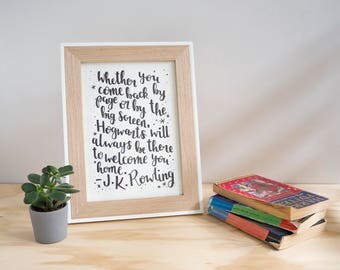 Whether you
come back by
page or by the
big screen,
Hogwarts will
always be there
to welcome you
home.
-J.K.Rowling